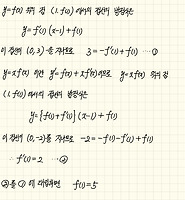 y=f(x) 위의 점 (1, f(1)) 에서의 접선의 방정식은
y=f'(1)(x-1)+f(1)
이 접선이 (0, 3) 을 지나므로 3=-f'(1)+f(1) ···①
y=xf(x) 라면 y'=f(x)+xf'(x)이므로 y=xf(x) 위의 점
(1, f(1)) 에서의 접선의 방정식은
y={f(1)+f'(1)}(x-1)+f(1)
이 접선이 (0, -2)을 지나므로 -2=-f(1)-f'(1)+f(1)
∴ f'(1)=2 ···②
②를 ①에 대입하면 f(1)=5